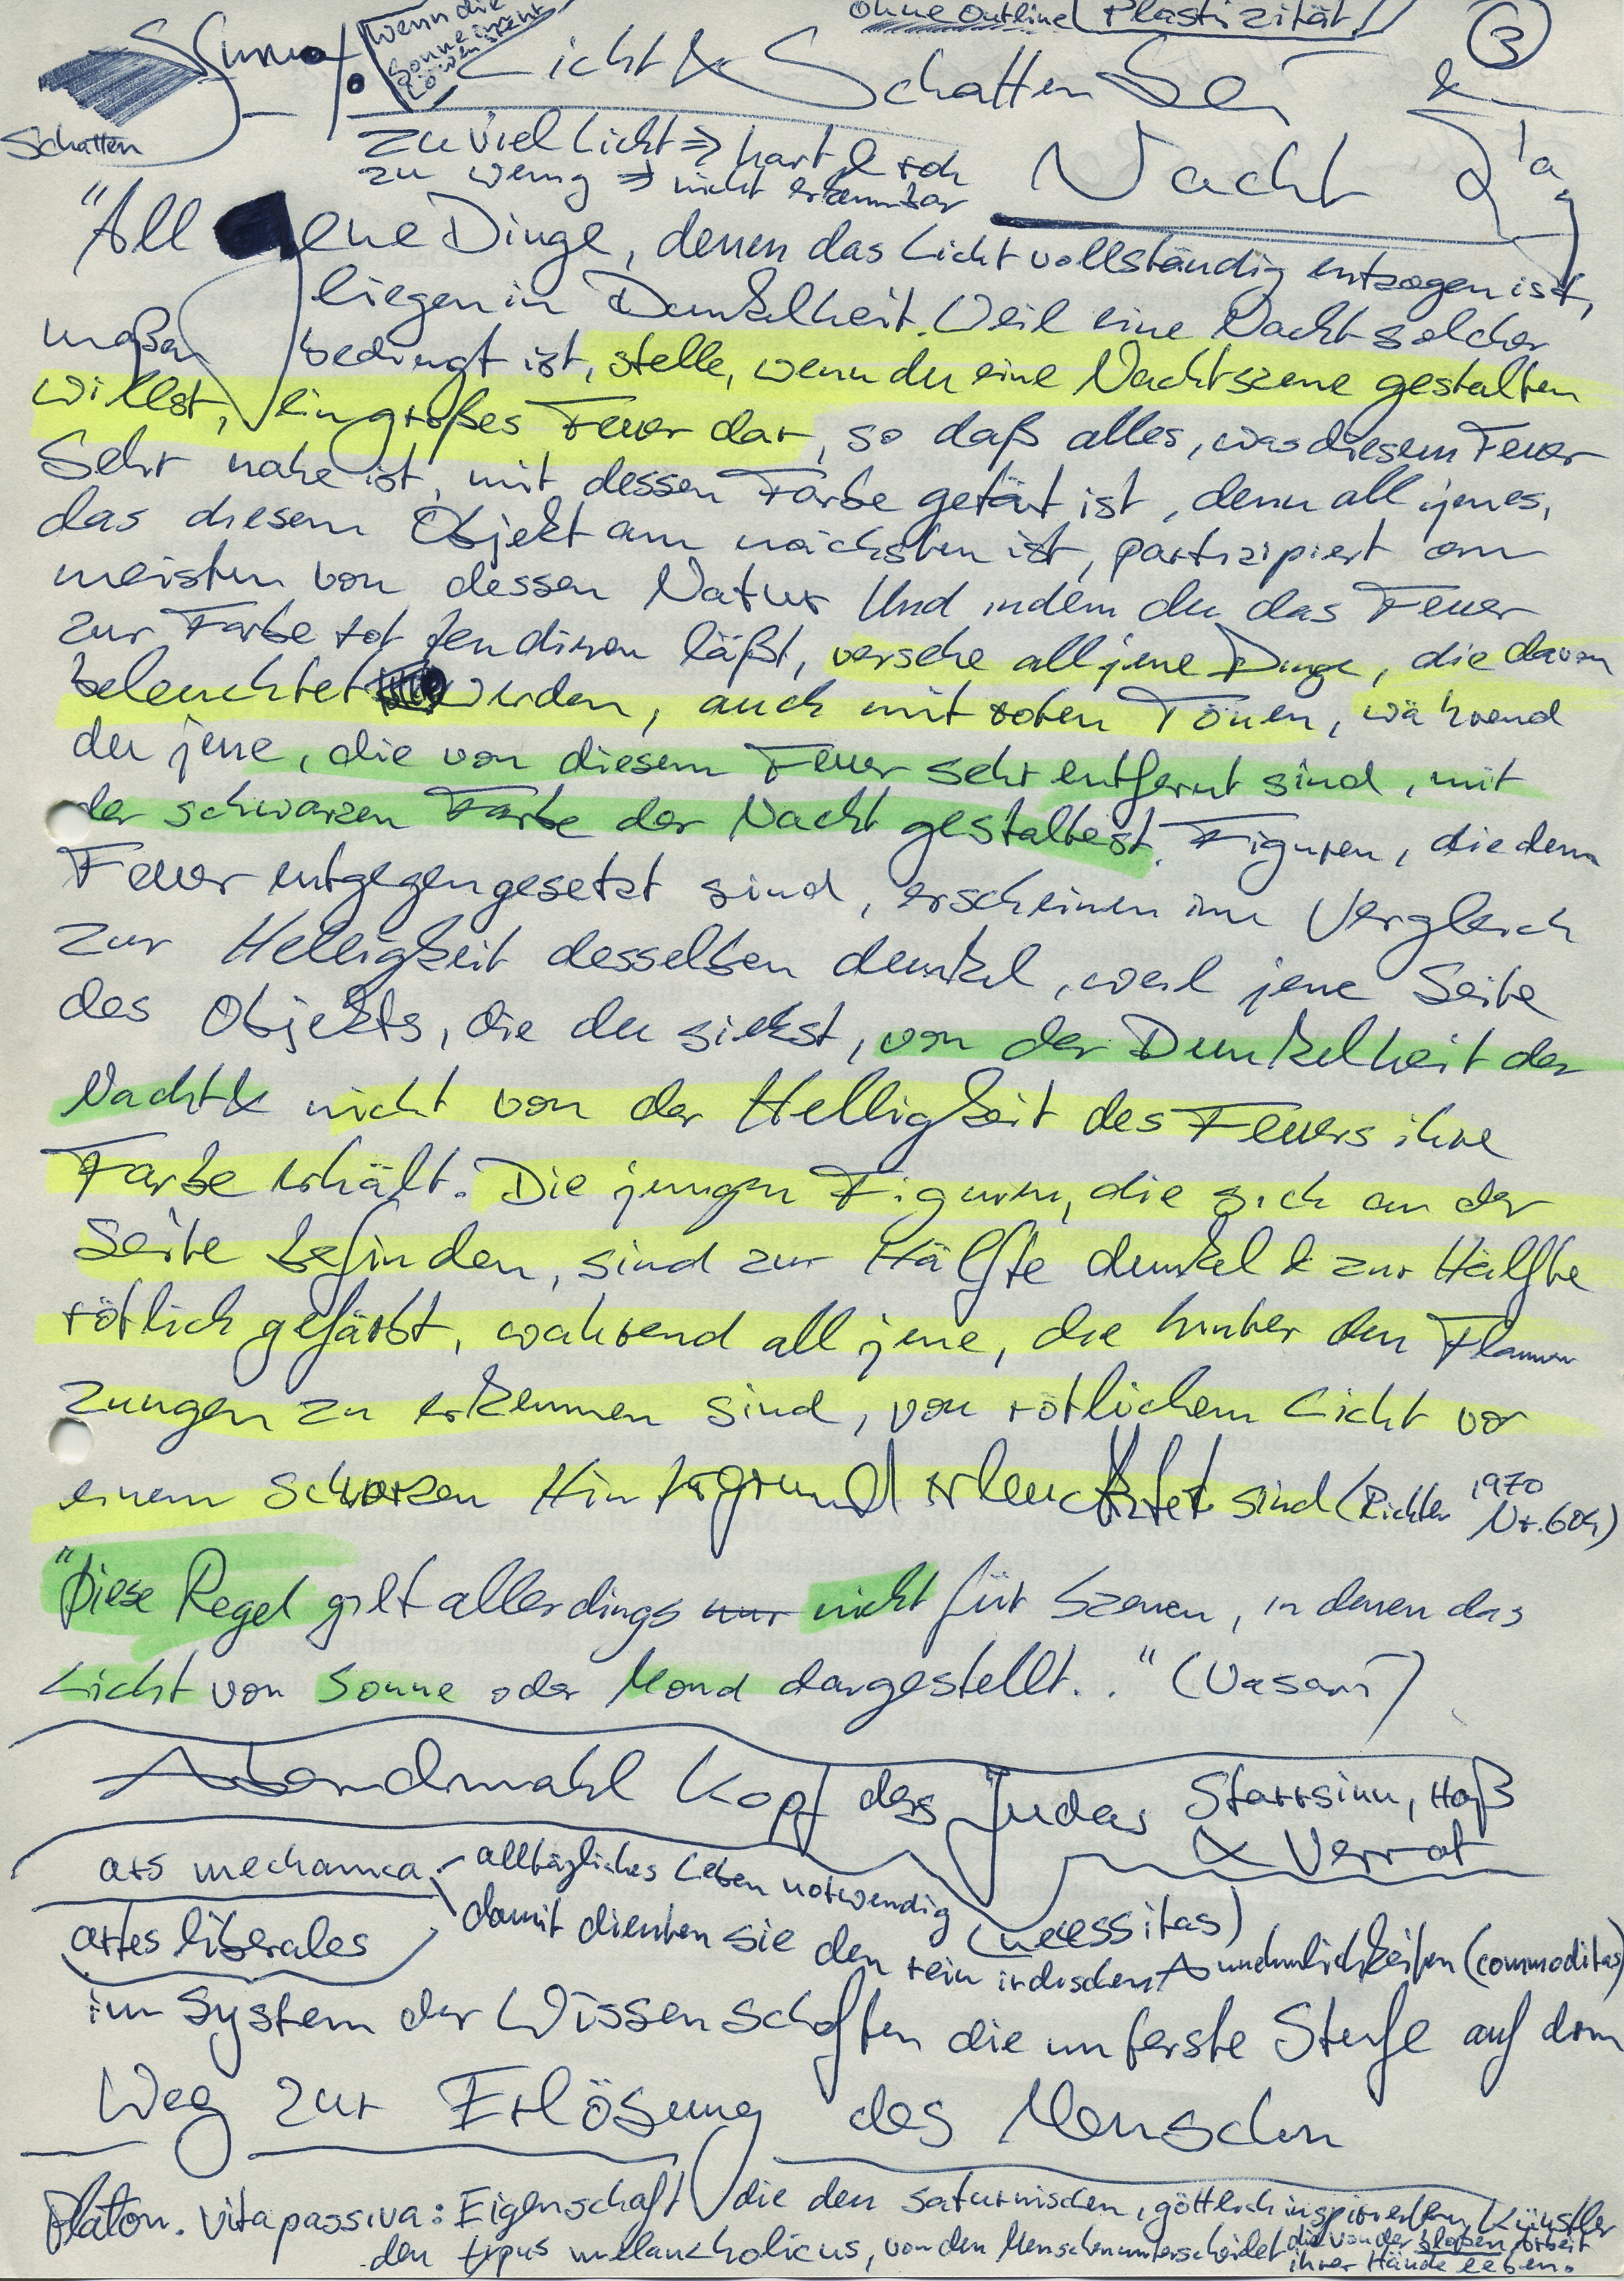 ohne outline Plastizität
3
Wenn die
Sonne im
Löwen steht
Licht & Schatten bei
Nacht & Tag
Schatten
zu viel Licht ⇒ hart & roh
zu wenig ⇒ nicht erkennbar
"All jene Dinge, denen das Licht vollständig entzogen ist,
liegen in Dunkelheit. Weil eine Nacht solcher
maßen bedingt ist, stelle, wenn du eine Nachtszene gestalten
willst, ein großes Feuer dar, so daß alles, was diesem Feuer
sehr nahe ist, mit dessen Farbe gefärbt ist, denn all jenes,
das diesem Objekt am nächsten ist, partizipiert am
meisten von dessen Natur Und indem du das Feuer
zur Farbe rot tendieren läßt, versehe all jene Dinge, die davon
beleuchtet werden, auch mit roten Tönen, während
du jene, die von diesem Feuer sehr entfernt sind, mit
der schwarzen Farbe der Nacht gestaltest. Figuren, die dem
Feuer entgegengesetzt sind, erscheinen im Vergleich
zur Helligkeit desselben dunkel, weil jene Seite
des Objekts, die du siehst, von der Dunkelheit der
Nacht & nicht von der Helligkeit des Feuers ihre
Farbe erhält. Die jenigen Figuren, die sich an der
Seite befinden, sind zur Hälfte dunkel & zur Hälfte
rötlich gefärbt, während all jene, die hinter den Flammen
zungen zu erkennen sind, von rötlichem Licht vor
einem schwarzen Hintergrund erleuchtet sind (Richter 1970 Nr. 604)
"Diese Regel gilt allerdings nur nicht für Szenen, in denen das
Licht von Sonne oder Mond dargestellt.." (Vasari)
Abendmahl Kopf des Judas Starrsinn, Haß
& Verrat
ars mechanica alltägliches Leben notwendig (necessitas)
artes liberales damit dienten sie den rein irdischen Annehmlichkeiten (commoditas)
im System der Wissenschaften die unterste Stufe auf dem
Weg zur Erlösung des Menschen
Platon. vita passiva: Eigenschaft die den saturnischen, göttlich inspirierten, Künstler
den typus melancholicus, von den Menschen unterscheidet die von der bloßen Arbeit
ihrer Hände leben.